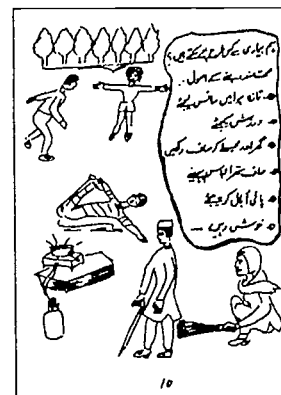 ہم بیماری سے کس طرح بچ سکتے ہیں؟
صحت مند رہنے کے اصول۔
تازہ ہوا میں سانس لیجئے
ورزش کیجئے
گھر اور محلہ کو صاف رکھیں
صاف ستھرا لباس پہنیئے
پانی اُبال کر پیجئے
خوش رہیں ...
10